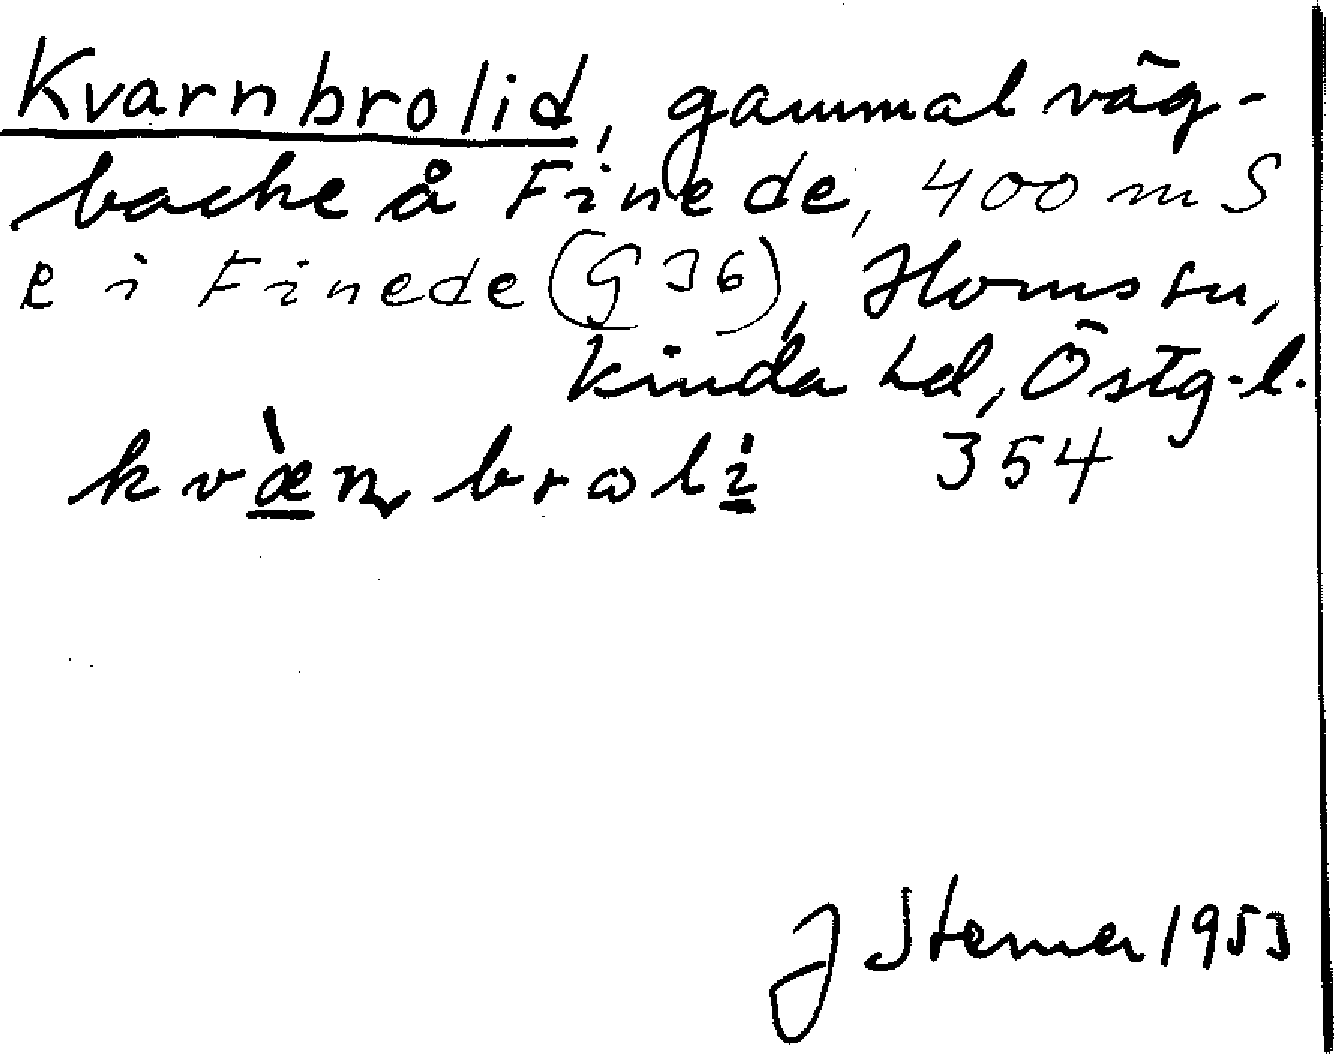 Kvarnbrolid, gammal väg-
backe å Finede, 400 m S
e i Finede (G 36), Homstu,
Kinda hd, Östg-l.
kvæ̀n broli 354
J Sterner 1953